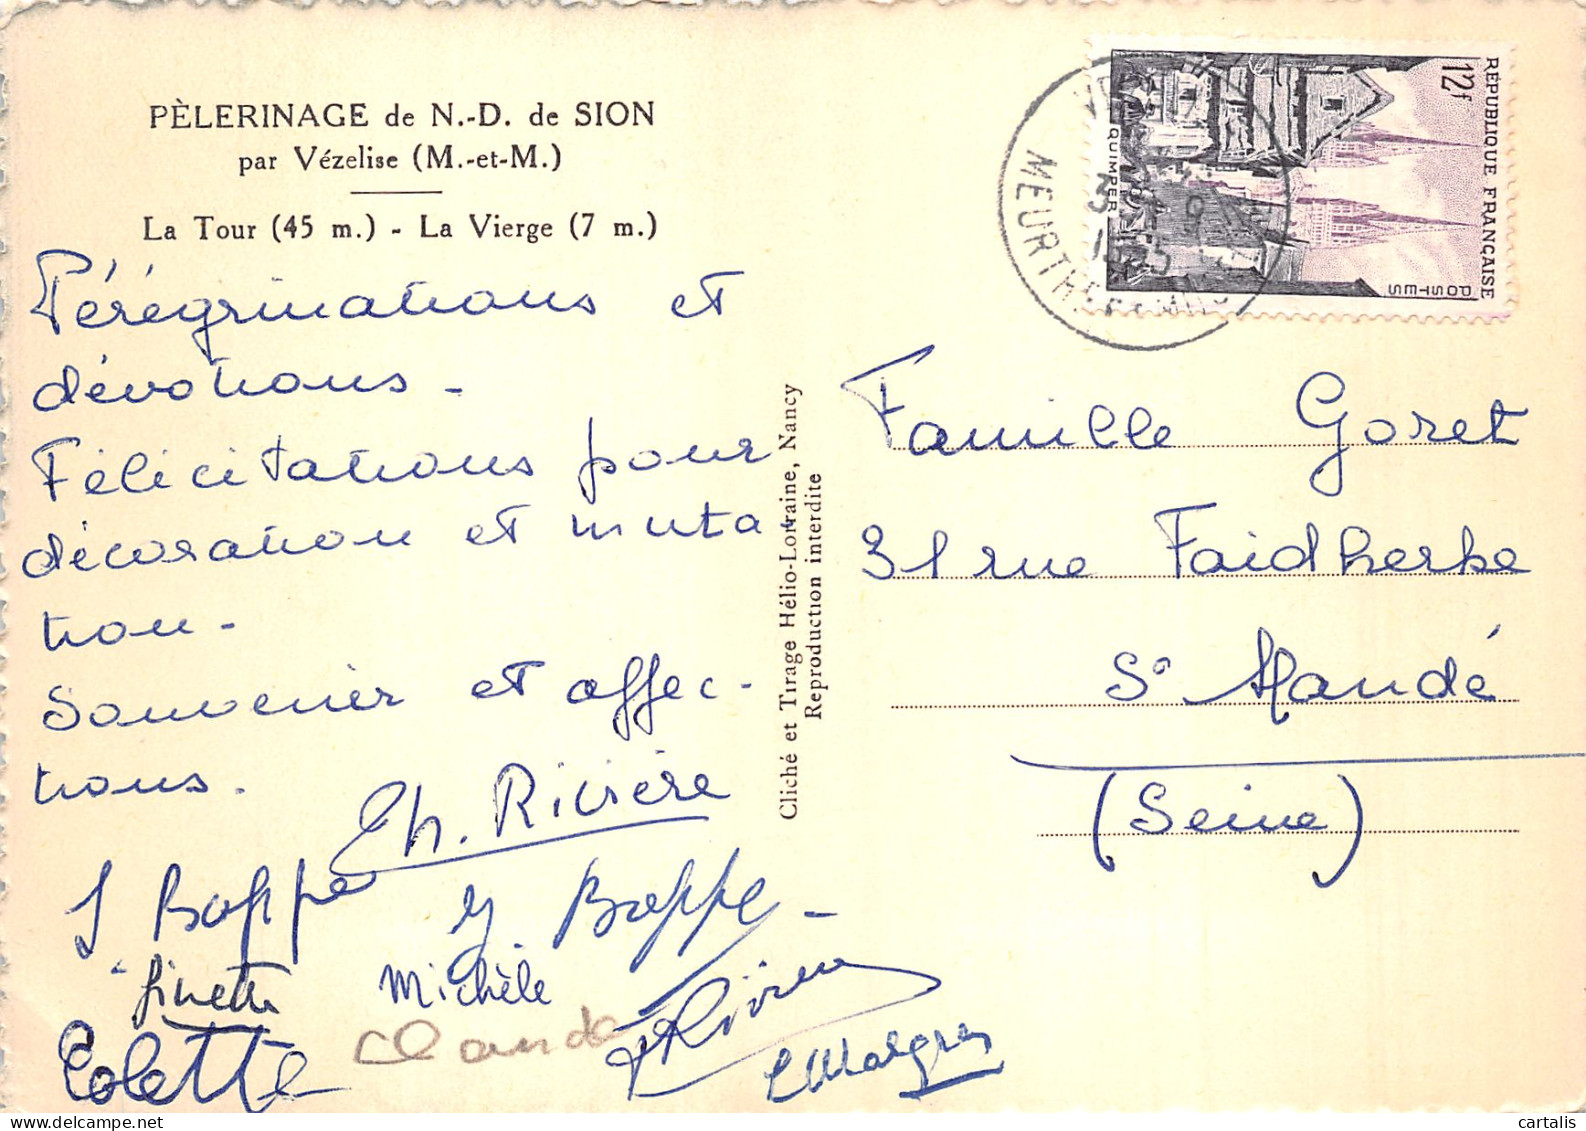 PÈLERINAGE de N.-D. de SION
par Vézelise (M.-et-M.)
La Tour (45 m.) - La Vierge (7 m.)
Pérégrinations et
dévotions -
Félicitations pour
décoration et muta
tion -
Souvenir et affec-
tions.
Ch. Rivière
J Boppe
Y Boppe -
finette
Michèle
Rivière
Colette
Claude
Cliché et Tirage Hélio-Lorraine, Nancy
Reproduction interdite
RÉPUBLIQUE FRANÇAISE
12f
POSTES
QUIMPER
MEURTHE ET
Famille Goret
31 rue Faidherbe
St Mandé
(Seine)
cartalis